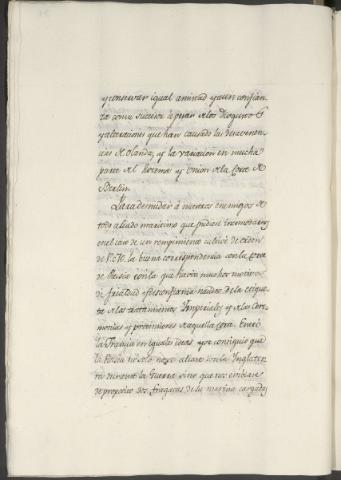 y conservar igual amistad y aun confian-
za con su succesor à pesar de los disgustos
y alteraciones que han causado las desavenen-
cias de Olanda, y la variacion en mucha
parte del sistema y union de la Corte de
Berlin.
Para desnudar à nuestros enemigos de
todo aliado maritimo que pudiese incomodarnos
en el caso de un rompimiento cultivé de orden
de V. M. la buena correspondencia con la Corte
de Rusia con la que havia muchos motivos
de frialdad y desconfianza nacidos de la etique-
ta de los tratamientos Imperiales y de las Cere-
monias y pretensiones de aquella Corte. Entró
la Francia en iguales ideas y se consiguio que
la Rusia no solo no se aliase con la Inglater-
ra durante la Guerra sino que nos embiase
de proposito dos fragatas de su marina cargadas